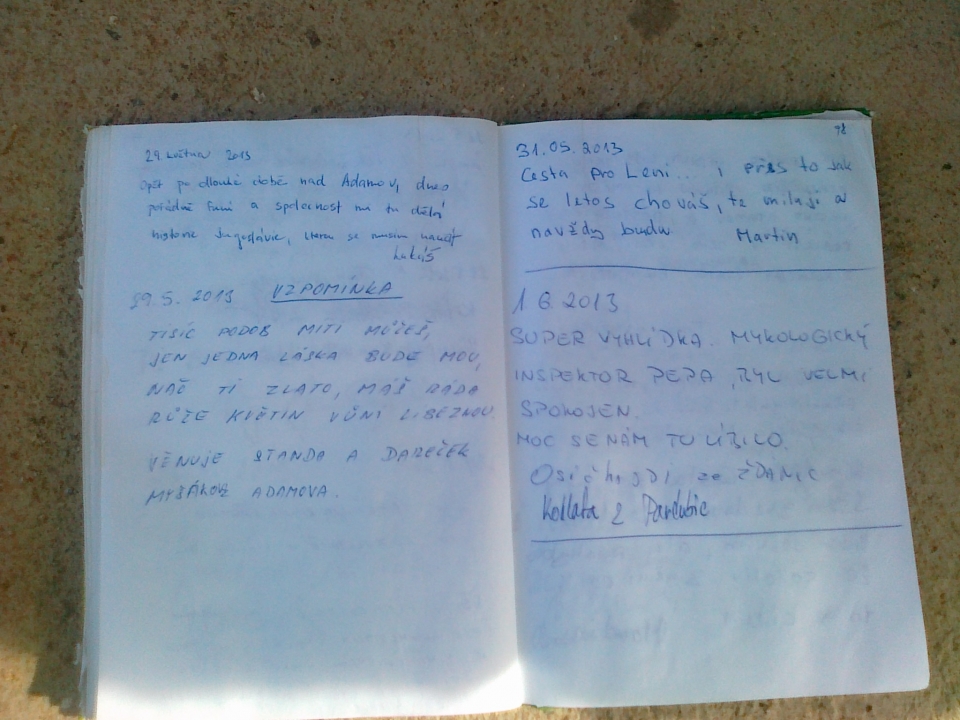 29. května 2013
Opět po dlouhé době nad Adamov, dnes
pořádně funí a společnost mi tu dělá
historie Jugoslávie, kterou se musím naučit
Lukáš
29. 5. 2013 VZPOMÍNKA
TISÍC PODOB MITI MŮŽEŠ,
JEN JEDNA LÁSKA BUDE MOU,
NAČ TI ZLATO, MÁŠ RÁDA
RŮŽE KVĚTIN VŮNÍ LIBEZNOU.
VĚNUJE STANDA A DAREČEK
ADAMOVA.
98
31. 05. 2013
Cesta pro Leni... i přes to jak
se letos chováš, tě miluji a
navždy budu Martin
1 6. 2013
SUPER VYHLÍDKA. MYKOLOGICKÝ
INSPEKTOR PEPA, BYL VELMI
SPOKOJEN.
MOC SE NÁM TU LÍBILO.
ze ŽDÁNIC
z Pardubic